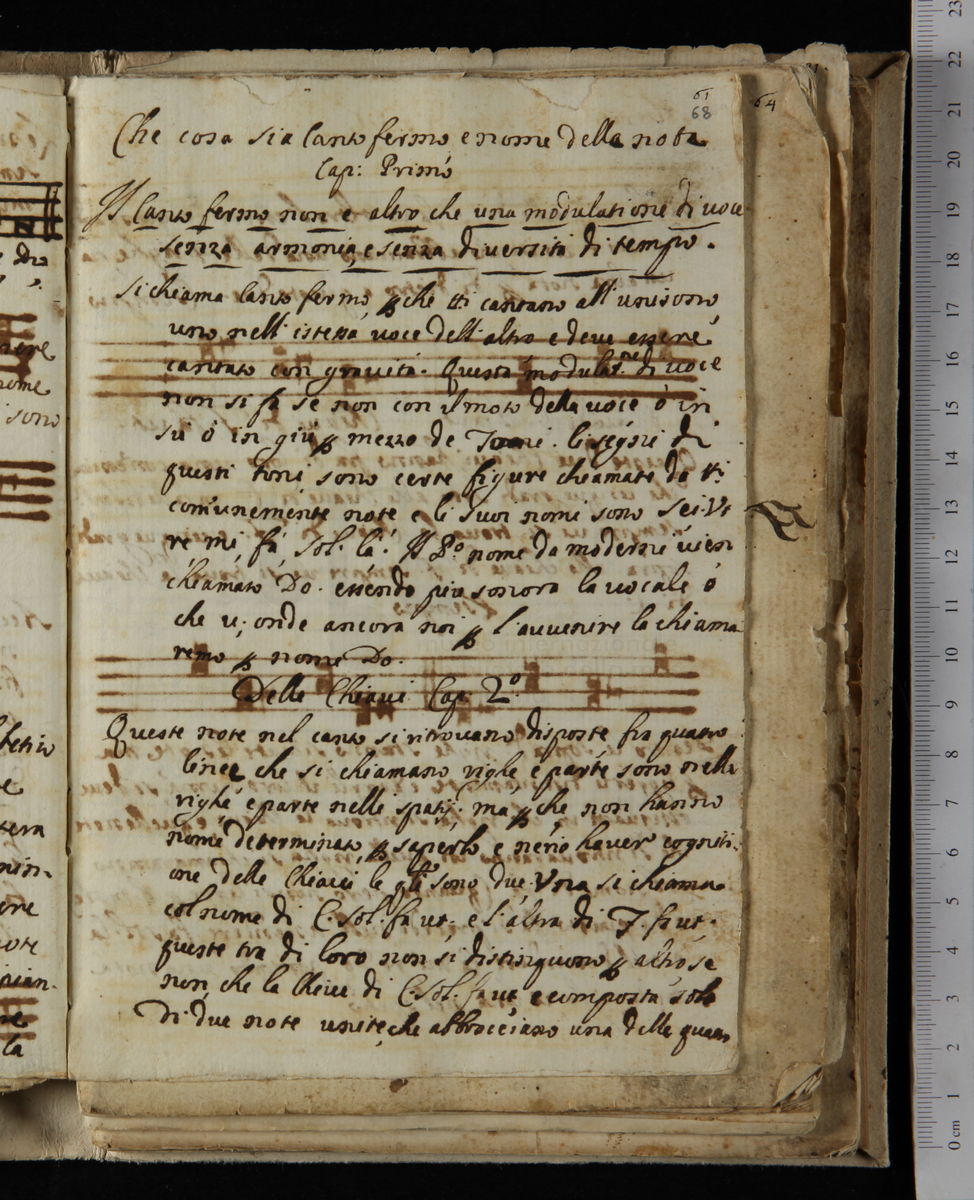 61
68
64
Che cosa sia Canto fermo e nome della nota
Cap: Primo
Il Canto fermo non e altro che una modulatione di voce
senza armonia, e senza diversità di tempo.
Si chiama Canto fermo, che tti cantano all'unisono
uno nell'istessa voce dell'altro e deve essere
cantato con gravità. Questa modulat.ne di voce
non si fà se non con il moto della voce ò in
sù ò in giù mezzo de Toni. li segni di
questi toni sono certe figure chiamate da tti
comunemente note e li suoi nomi sono sei. Vt
re mi, fà, sol. là. Il P.o nome da moderni vien
chiamato Do. essendo piu sonora la vocale ò
che u; onde ancora noi l'avvenire lo chiama
remo nome Do.
Delle Chiavi Cap. 2.o
Queste note nel canto si ritrovano disposte frà quatro
linee che si chiamano righe e parte sono nelle
righe e parte nelli spatij. mà che non hanno
nome determinato, saperlo è haver cogniti
one delle Chiavi le qli sono due. Vna si chiama
col nome di C. sol. fa ut. e l'altra di F. fa ut.
queste trà di loro non si distinguono altro se
non, che la Chiave di C. sol. fa ut e composta solo
di due note unite, che abbracciano una delle quatr